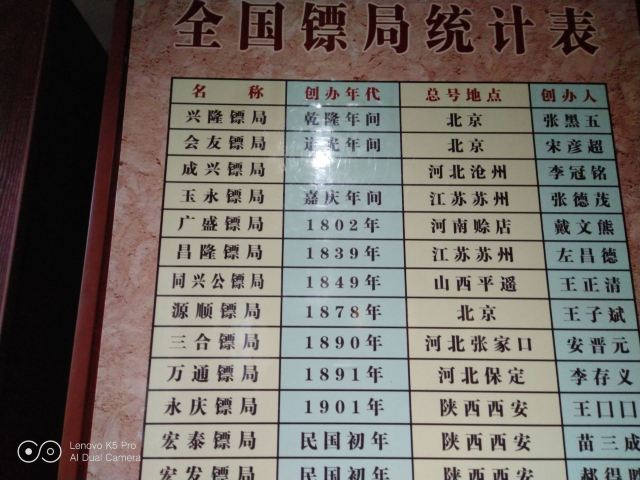 全国镖局统计表
名 称 创办年代 总号地点 创办人
兴隆镖局 乾隆年间 北京 张黑五
会友镖局 道光年间 北京 宋彦超
成兴镖局 河北沧州 李冠铭
玉永镖局 嘉庆年间 江苏苏州 张德茂
广盛镖局 1802年 河南赊店 戴文熊
昌隆镖局 1839年 江苏苏州 左昌德
同兴公镖局 1849年 山西平遥 王正清
源顺镖局 1878年 北京 王子斌
三合镖局 1890年 河北张家口 安晋元
万通镖局 1891年 河北保定 李存义
永庆镖局 1901年 陕西西安 王口口
宏泰镖局 民国初年 陕西西安 苗三成
宏发镖局 民国初年 陕西西安 郝得胜
Lenovo K5 Pro
AI Dual Camera